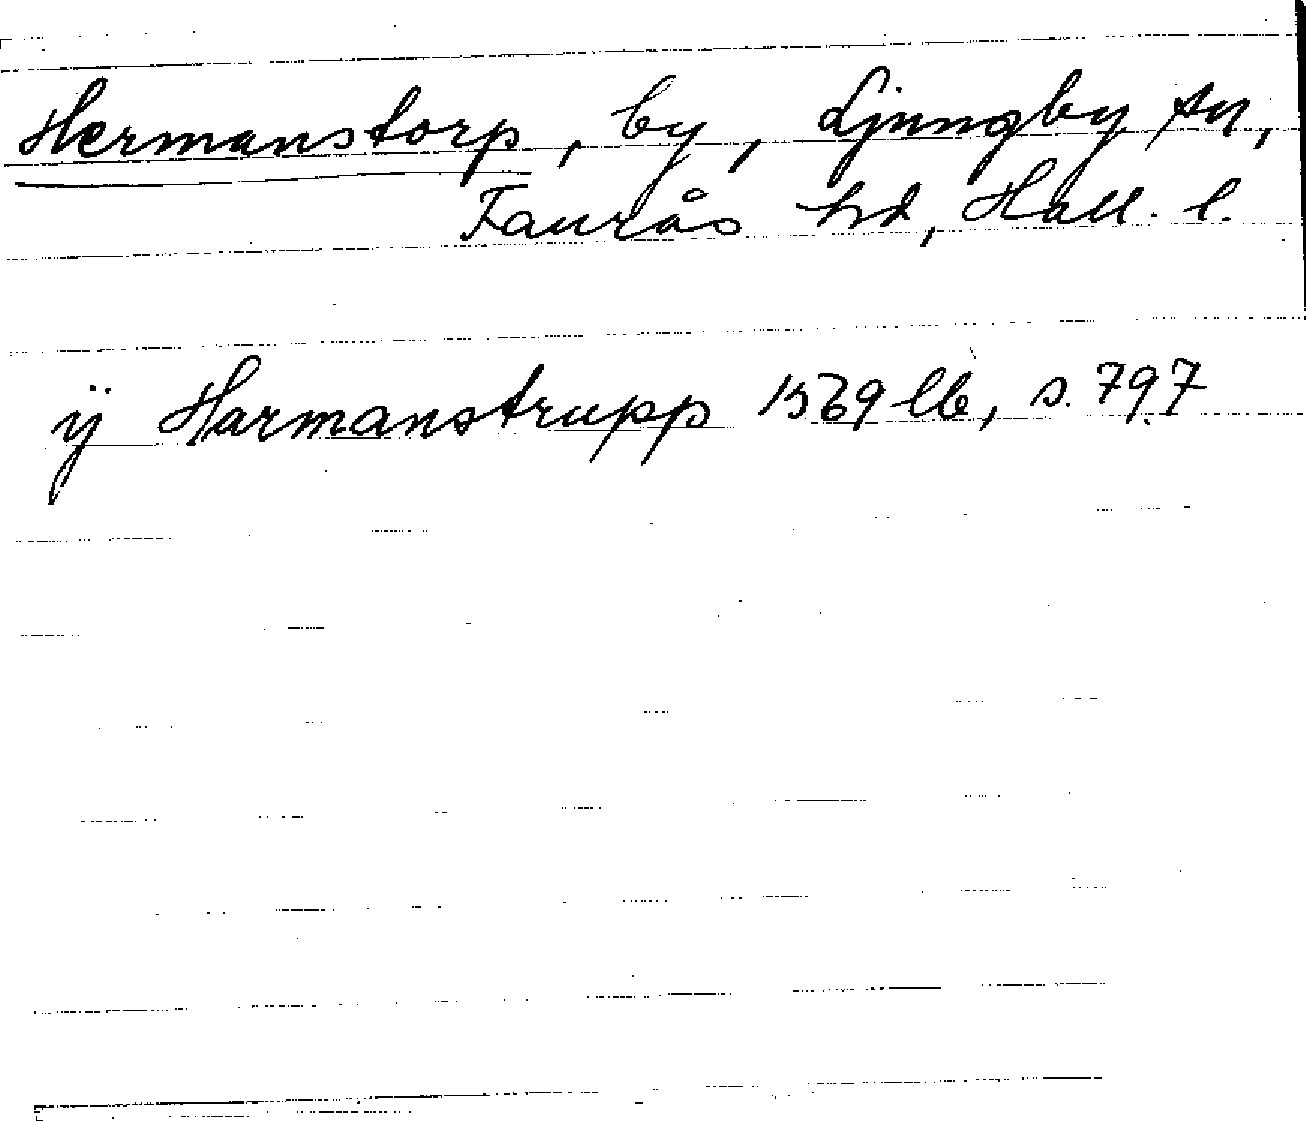 Hermanstorp, by, Ljungby sn,
Faurås hd, Hall. l.
ÿ Harmanstrupp 1569 lb, s. 797